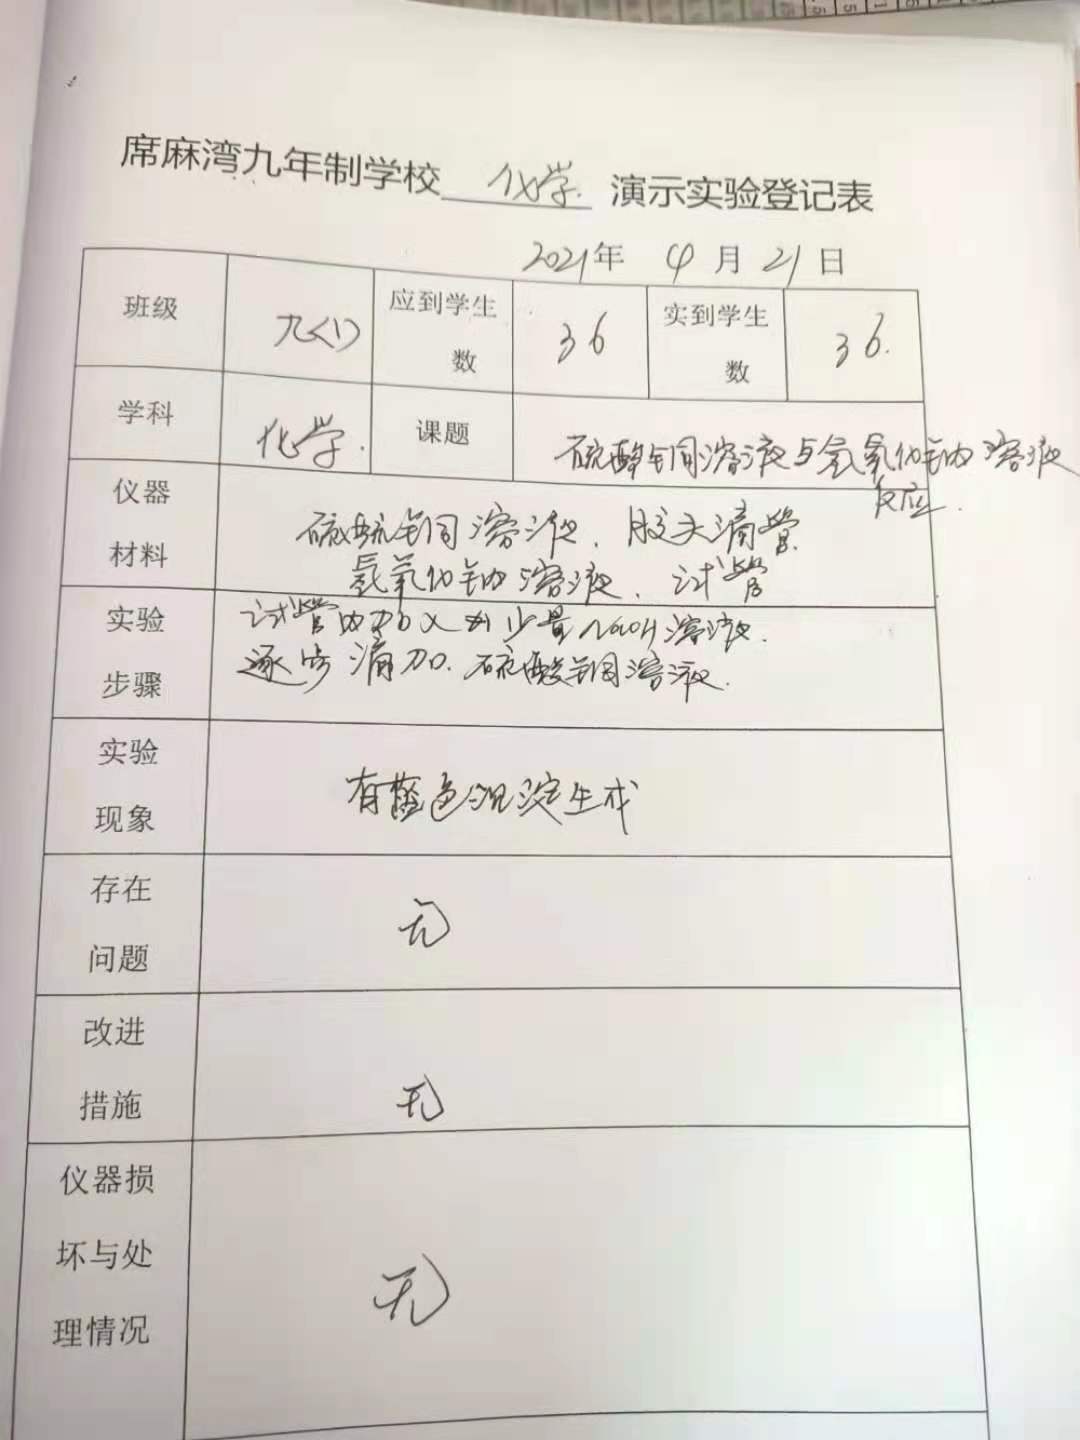 席麻湾九年制学校 化学. 演示实验登记表
2021年 4月 21日
班级 九<1> 应到学生数 36 实到学生数 36.
学科 化学. 课题 硫酸铜溶液与氢氧化钠溶液
反应.
仪器材料 硫酸铜溶液. 胶头滴管
氢氧化钠溶液. 试管
实验步骤 试管内加入少量NaOH溶液.
逐步滴加. 硫酸铜溶液.
实验现象 有蓝色沉淀生成
存在问题 无
改进措施 无
仪器损坏与处理情况 无